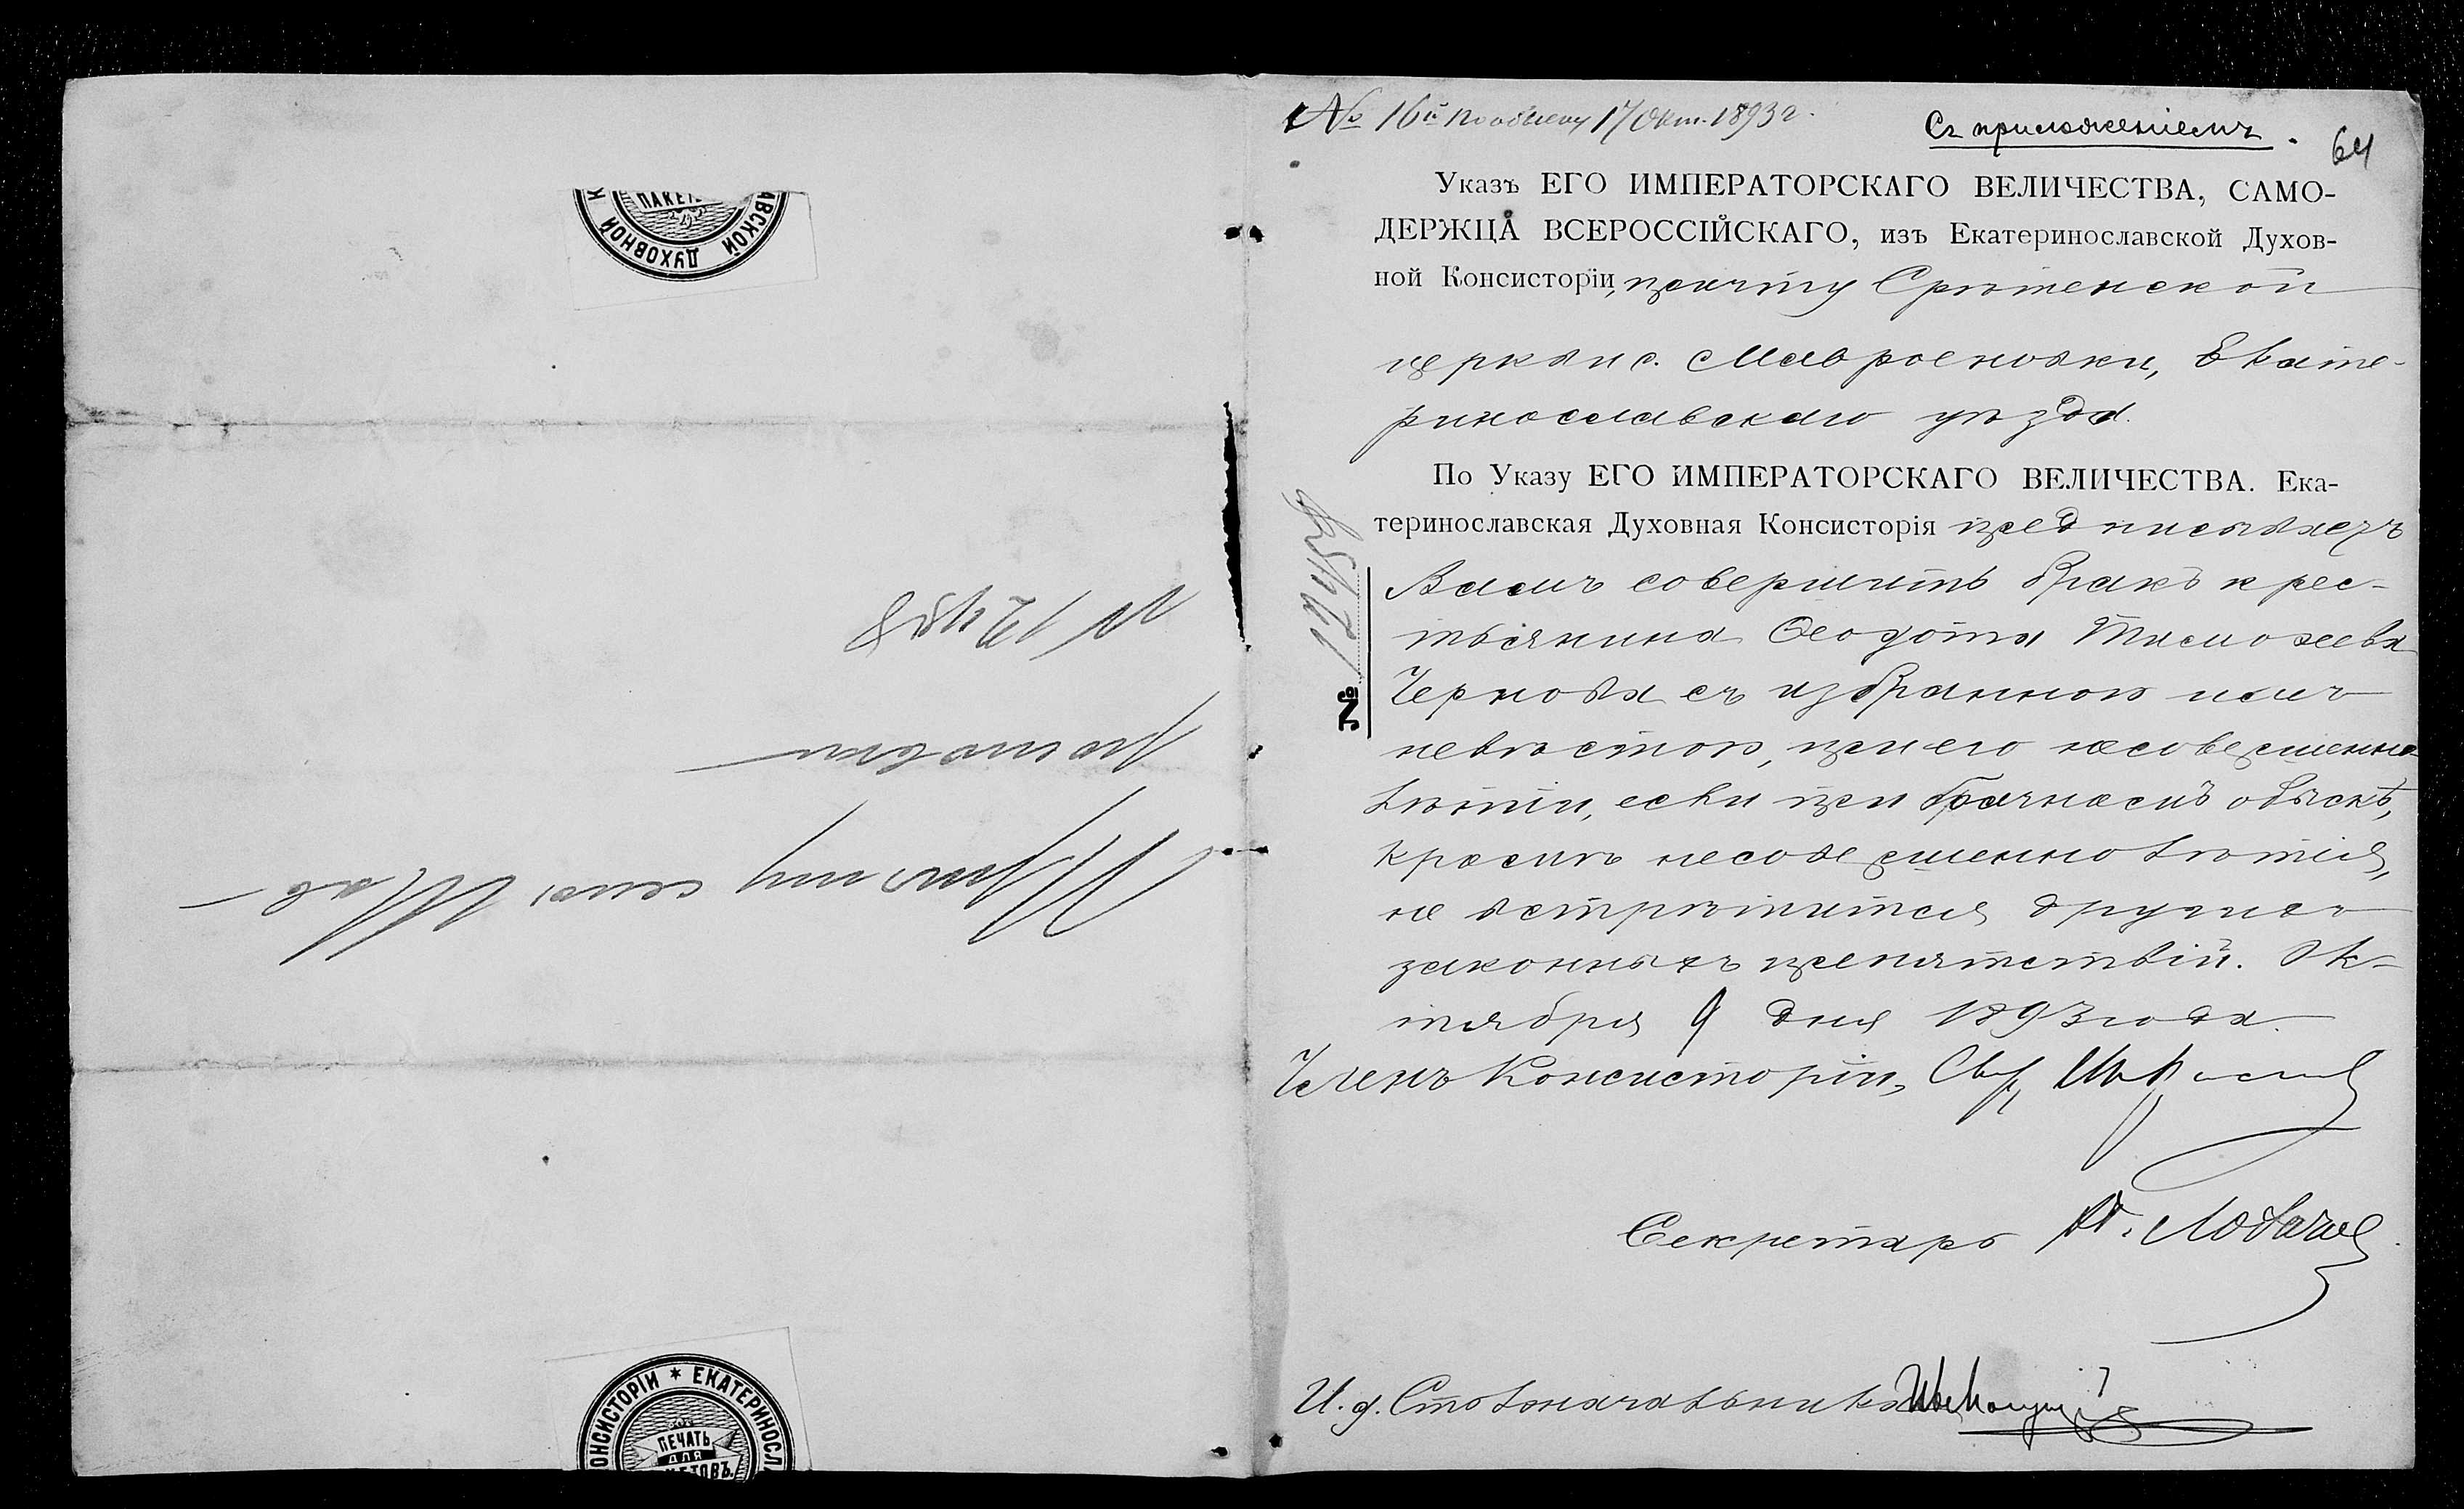 ДУХОВНОЙ
№ 12458
Причту села Мав-
№ 16й по обыску 17 Окт. 1893 г.
Съ приложеніемъ.
64
Указъ ЕГО ИМПЕРАТОРСКАГО ВЕЛИЧЕСТВА, САМО-
ДЕРЖЦА ВСЕРОССІЙСКАГО, изъ Екатеринославской Духов-
ной Консисторіи, причту Срѣтенской
церкви с. Мавроеновки, Екате-
ринославскаго уѣзда.
По Указу ЕГО ИМПЕРАТОРСКАГО ВЕЛИЧЕСТВА. Ека-
теринославская Духовная Консисторія предписываетъ
Вамъ совершить бракъ крес-
тьянина Ѳеодота Тимоѳеева
Чернова съ избранною имъ
невѣстою, при его несовершенно-
лѣтіи, если при брачномъ обыскѣ,
кромѣ несовершеннолѣтія,
не встрѣтится другихъ
законныхъ препятствій. Ок-
тября 9 дня 1893 года.
№ 12458
Членъ Консисторіи, Свящ.
Секретарь
И. д. Столоначальника
КОНСИСТОРІИ * ЕКАТЕРИНОСЛ
ПЕЧАТЬ
ДЛЯ